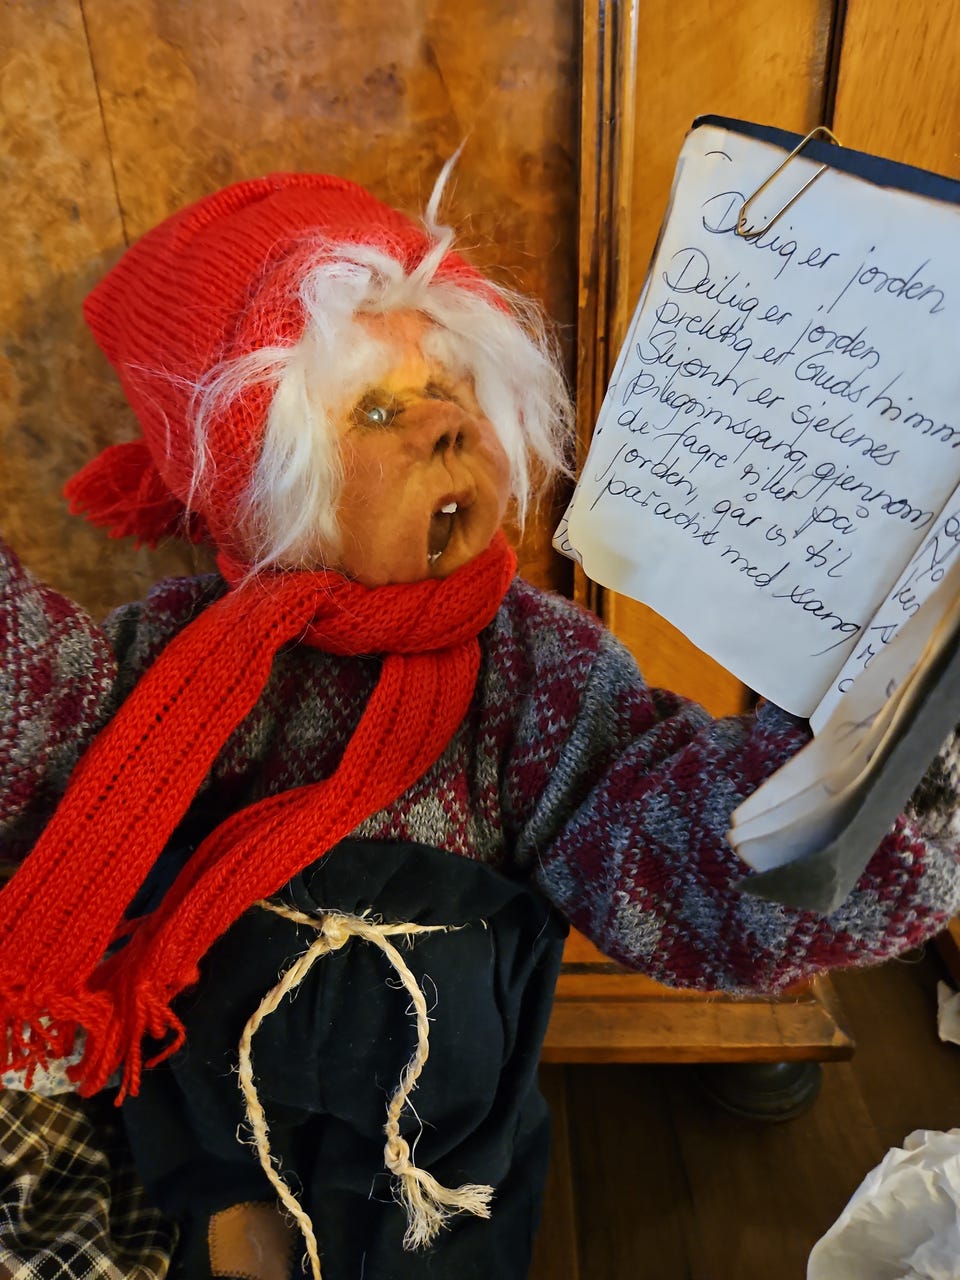 Deilig er jorden
Deilig er jorden
prektig er Guds himm
Skjønn er sjelenes
pilegrimsgang, gjennom
de fagre riker på
jorden, går vi til
paradis med sang